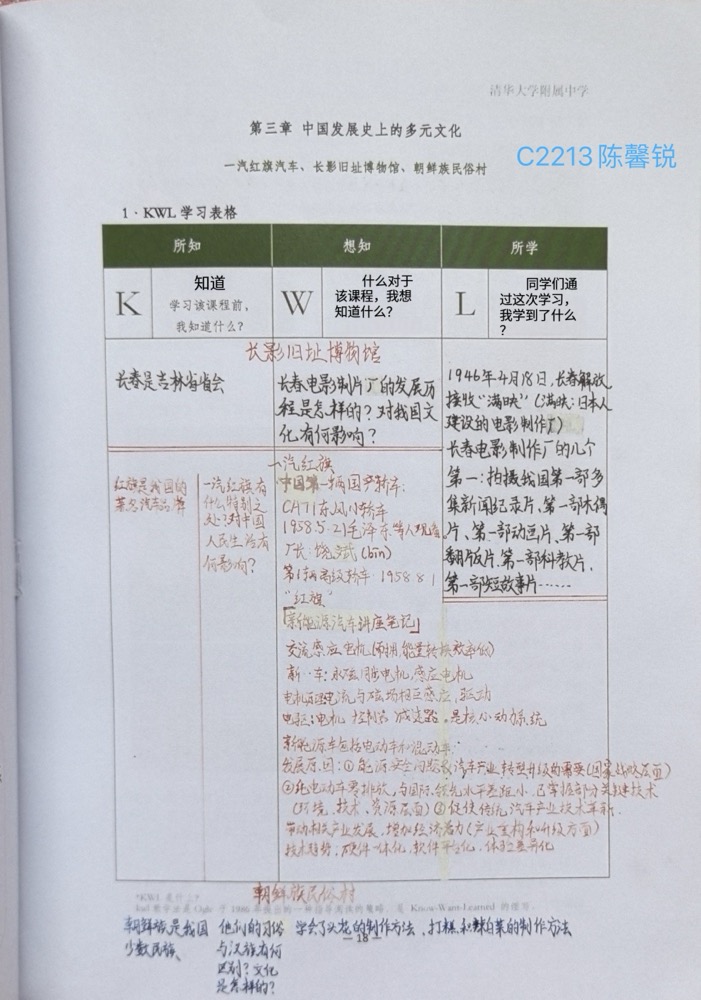 清华大学附属中学
第三章 中国发展史上的多元文化
C2213 陈馨锐
一汽红旗汽车、长影旧址博物馆、朝鲜族民俗村
1·KWL 学习表格
所知
想知
所学
K
知道
学习该课程前，
我知道什么？
W
什么对于
该课程，我想
知道什么？
L
同学们通
过这次学习，
我学到了什么
？
长影旧址博物馆
长春是吉林省省会
长春电影制片厂的发展历
程是怎样的？对我国文
化有何影响？
1946年4月18日，长春解放
接收“满映”（满映：日本人
建设的电影制作厂）
长春电影制作厂的几个
第一：拍摄我国第一部多
集新闻纪录片、第一部木偶
片、第一部动画片、第一部
翻版片、第一部科教片、
第一部短故事片……
一汽红旗
红旗是我国的
著名汽车品牌
一汽红旗有
什么特别之
处？对中国
人民生活有
何影响？
中国第一辆国产轿车：
CA71东风小轿车
1958.5.21毛泽东等人观看
厂长 饶斌（bin）
第1辆高级轿车 1958.8.1
“红旗”
「新能源汽车讲座笔记」
交流感应电机（弊端：能量转换效率低）
新一车：永磁同步电机，感应电机
电机原理：电流与磁场相互感应，驱动
电驱：电机 控制器 减速器 是核心动力系统
新能源车包括电动车和混动车
发展原因：①能源安全问题和汽车产业转型升级的需要（国家战略层面）
②纯电动车零排放，与国际领先水平差距小，已掌握部分关键技术
（环境、技术、资源层面）③促使传统汽车产业技术革新，
带动相关产业发展，增加经济活力（产业结构和升级方面）
技术趋势：硬件一体化、软件平台化、体验差异化
朝鲜族民俗村
*KWL 是什么？
于 1986 年提出的一种指导阅读的策略，是 Know-Want-Learned 的缩写。
朝鲜族是我国
少数民族、
他们的习俗
与汉族有何
区别？文化
是怎样的？
学会了头花的制作方法，打糕和辣白菜的制作方法
— 18 —